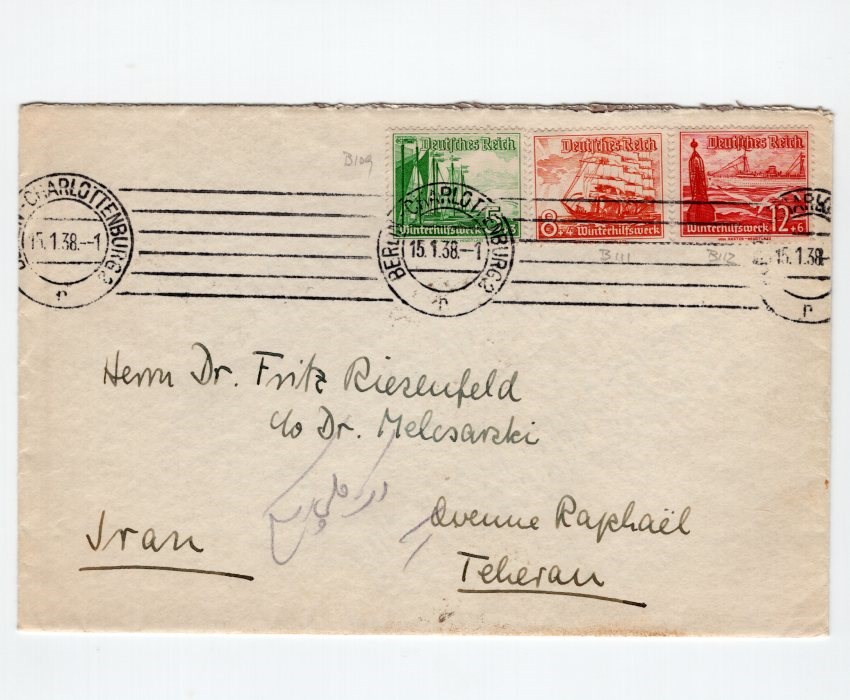 B109
Deutsches Reich
Winterhilfswerk
Deutsches Reich
8+4 Winterhilfswerk
B111
Deutsches Reich
Winterhilfswerk 12+6
B112
CHARLOTTENBURG2
15.1.38.-1
BERLIN-CHARLOTTENBURG2
15.1.38.-1
15.1.38-
Herrn Dr. Fritz Riesenfeld
c/o Dr. Melcsarski
Avenue Raphaël
Iran
Teheran